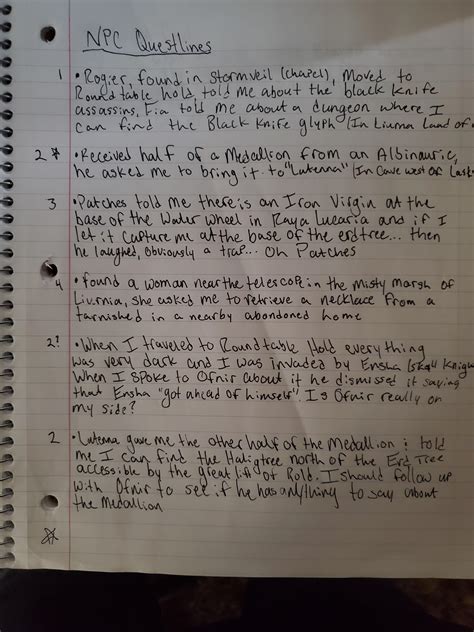 NPC Questlines
1 • Rogier, found in Stormveil (chapel), Moved to
Roundtable hold, told me about the black knife
assassins, Fia told me about a dungeon where I
can find the Black Knife glyph (In Liurna Land of
2 • Received half of a Medallion from an Albinauric,
he asked me to bring it to "Lutenna" (In Cave west of Lask
3 • Patches told me there is an Iron Virgin at the
base of the Water Wheel in Raya Lucaria and if I
let it capture me at the base of the erdtree... then
he laughed, obviously a trap... Oh Patches
4 • found a woman near the telescope in the misty marsh of
Liurnia, she asked me to retrieve a necklace from a
tarnished in a nearby abondoned home
2? • When I traveled to Roundtable Hold everything
was very dark and I was invaded by Ensha (skull Knigh
When I spoke to Ofnir about it he dismissed it saying
that Ensha "got ahead of himself". Is Ofnir really on
my side?
2 • Lutenna gave me the other half of the Medallion & told
me I can find the Haligtree north of the Erd Tree
accessible by the great lift of Rold. I should follow up
with Ofnir to see if he has anything to say about
the Medallion